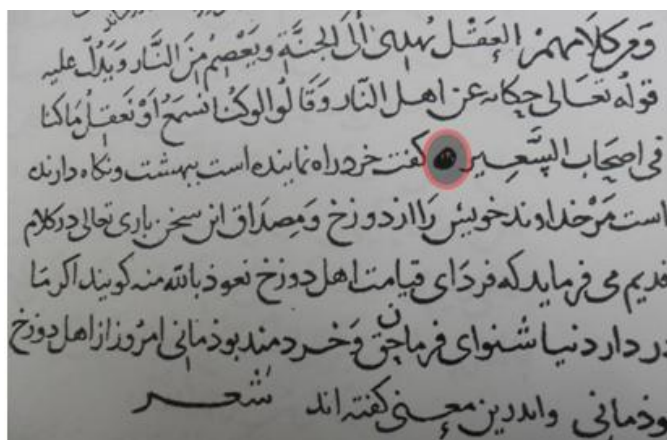 و من كلامهم العقل يهدى الى الجنة ويعصم من النار ويدل عليه
قوله تعالى حكاية عن اهل النار وقالوا لو كنا نسمع او نعقل ما كنا
فى اصحاب السعير كفت خرد راه نماینده است ببهشت و نكاه دارنده
است مر خداوند خویش را از دوزخ و مصداق این سخن باری تعالی در كلام
قدیم می فرماید كه فردای قیامت اهل دوزخ نعوذ بالله منه كویند اكر ما
در دار دنیا شنوای فرمان حق و خردمند بوذمانی امروز از اهل دوزخ
بوذمانی واندرین معنی كفته اند شعر